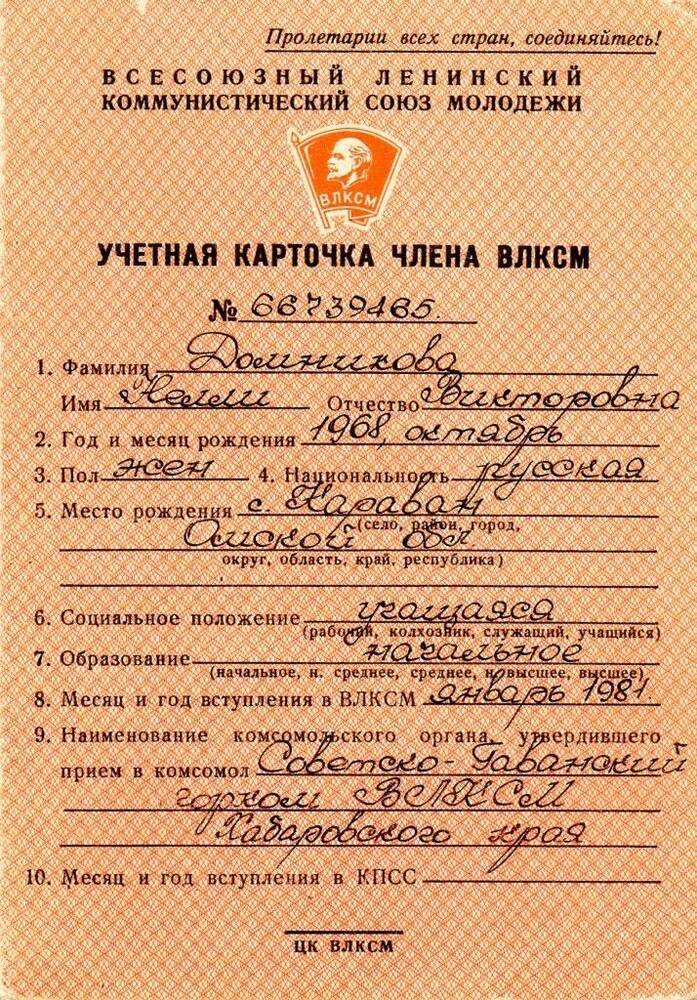 Пролетарии всех стран, соединяйтесь!
ВСЕСОЮЗНЫЙ ЛЕНИНСКИЙ
КОММУНИСТИЧЕСКИЙ СОЮЗ МОЛОДЕЖИ
ВЛКСМ
УЧЕТНАЯ КАРТОЧКА ЧЛЕНА ВЛКСМ
№ 66739465.
1. Фамилия Домникова
Имя Нелли Отчество Викторовна
2. Год и месяц рождения 1968, октябрь
3. Пол жен 4. Национальность русская
5. Место рождения с. Караван
(село, район, город,
Омской обл
округ, область, край, республика)
6. Социальное положение учащаяся
(рабочий, колхозник, служащий, учащийся)
7. Образование начальное
(начальное, н. среднее, среднее, н/высшее, высшее)
8. Месяц и год вступления в ВЛКСМ январь 1981.
9. Наименование комсомольского органа, утвердившего
прием в комсомол Советско-Гаванский
горком ВЛКСМ
Хабаровского края
10. Месяц и год вступления в КПСС
ЦК ВЛКСМ